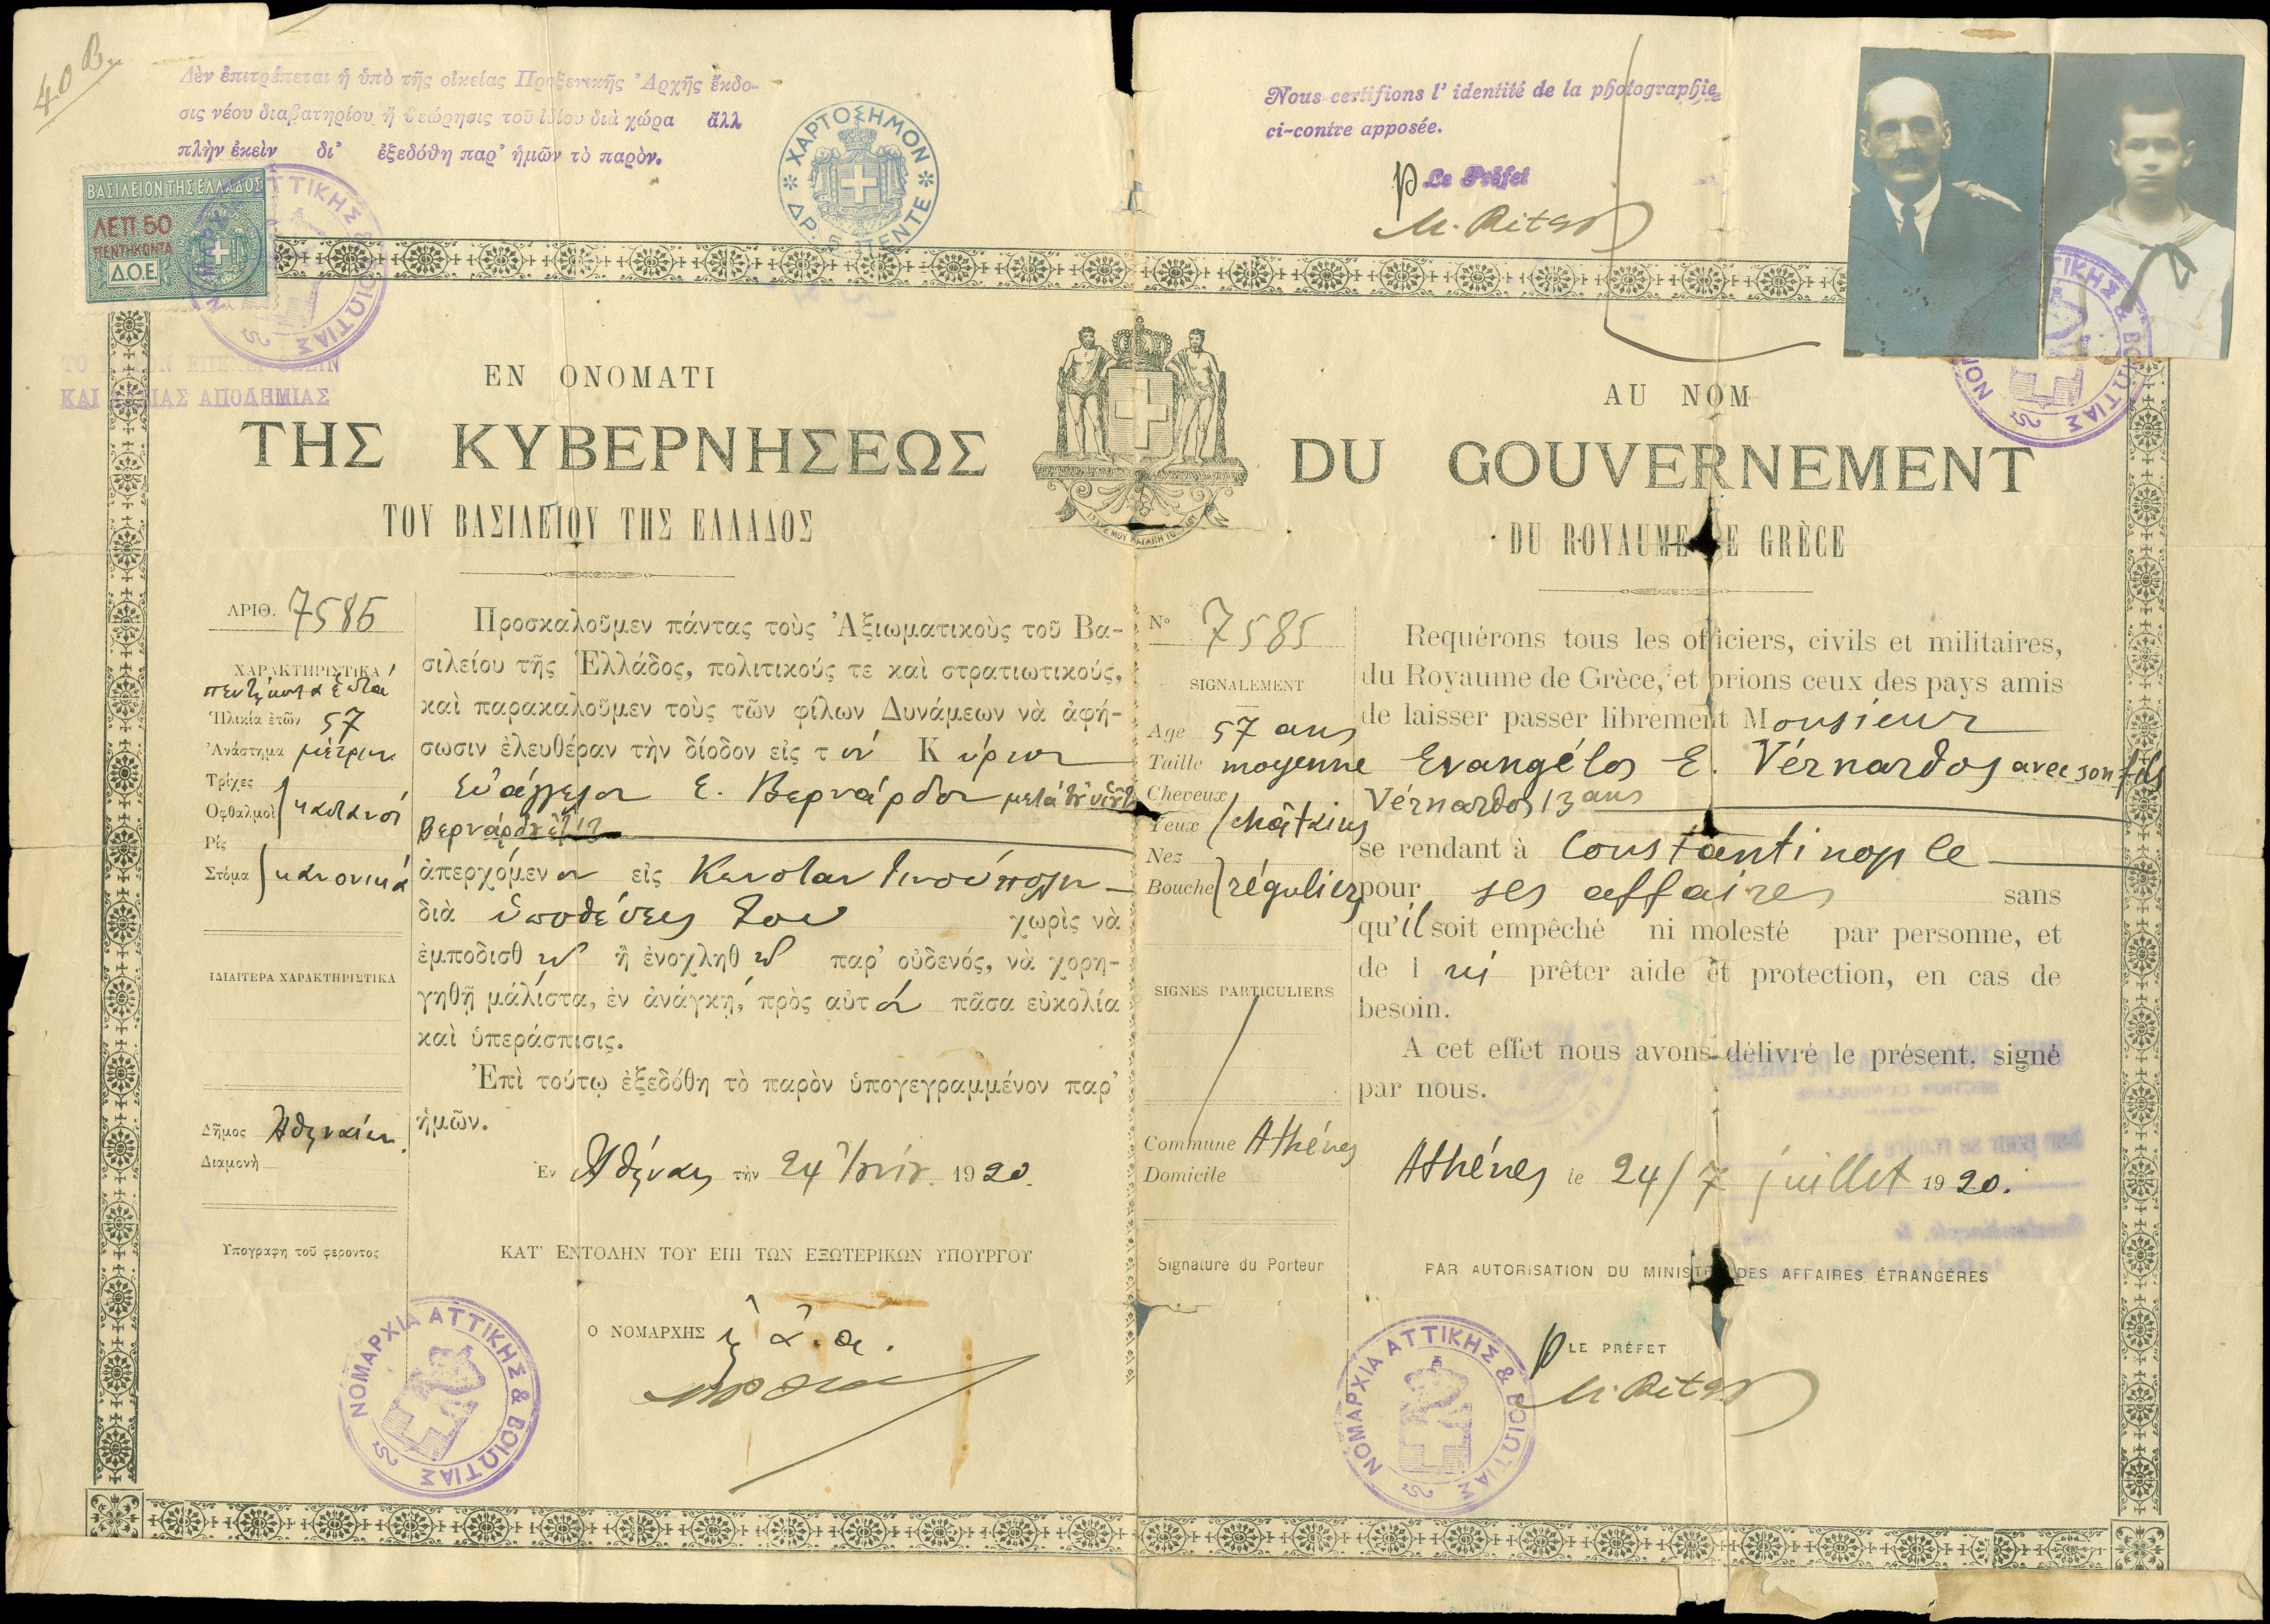 40
Δὲν ἐπιτρέπεται ἡ ὑπὸ τῆς οἰκείας Προξενικῆς Ἀρχῆς ἔκδο-
σις νέου διαβατηρίου ἢ θεώρησις τοῦ ἰδίου διὰ χώρα ἄλλ
πλὴν ἐκείν δι' ἐξεδόθη παρ' ἡμῶν τὸ παρὸν.
ΒΑΣΙΛΕΙΟΝ ΤΗΣ ΕΛΛΑΔΟΣ
ΛΕΠ. 50
ΠΕΝΤΗΚΟΝΤΑ
Δ.Ο.Ε
ΧΑΡΤΟΣΗΜΟΝ
ΔΡ. 5 ΠΕΝΤΕ
ΚΑΙ ΑΠΟΔΗΜΙΑΣ
ΕΝ ΟΝΟΜΑΤΙ
ΤΗΣ ΚΥΒΕΡΝΗΣΕΩΣ
ΤΟΥ ΒΑΣΙΛΕΙΟΥ ΤΗΣ ΕΛΛΑΔΟΣ
ΑΡΙΘ. 7585
ΧΑΡΑΚΤΗΡΙΣΤΙΚΑ
πεντήκοντα ἑπτά
Ἡλικία ἐτῶν 57
Ἀνάστημα μέτριον
Τρίχες
Οφθαλμοὶ καστανοί
Ρίς
Στόμα κανονικά
ΙΔΙΑΙΤΕΡΑ ΧΑΡΑΚΤΗΡΙΣΤΙΚΑ
Δῆμος Ἀθηναίων
Διαμονὴ
Υπογραφη τοῦ φεροντος
Προσκαλοῦμεν πάντας τοὺς Ἀξιωματικοὺς τοῦ Βα-
σιλείου τῆς Ἑλλάδος, πολιτικούς τε καὶ στρατιωτικούς,
καὶ παρακαλοῦμεν τοὺς τῶν φίλων Δυνάμεων νὰ ἀφή-
σωσιν ἐλευθέραν τὴν δίοδον εἰς τὸν Κύριον
Εὐάγγελον Ε. Βερνάρδον μετὰ τοῦ υἱοῦ του
ἀπερχόμενον εἰς Κωνσταντινούπολιν
διὰ ὑποθέσεις του χωρὶς νὰ
ἐμποδισθῇ ἢ ἐνοχληθῇ παρ' οὐδενός, νὰ χορη-
γηθῇ μάλιστα, ἐν ἀνάγκῃ, πρὸς αὐτὸν πᾶσα εὐκολία
καὶ ὑπεράσπισις.
Ἐπὶ τούτῳ ἐξεδόθη τὸ παρὸν ὑπογεγραμμένον παρ'
ἡμῶν.
Ἐν Ἀθήναις τὴν 24 Ἰουνίου 1920.
ΚΑΤ' ΕΝΤΟΛΗΝ ΤΟΥ ΕΠΙ ΤΩΝ ΕΞΩΤΕΡΙΚΩΝ ΥΠΟΥΡΓΟΥ
Ο ΝΟΜΑΡΧΗΣ
ΝΟΜΑΡΧΙΑ ΑΤΤΙΚΗΣ & ΒΟΙΩΤΙΑΣ
Nous certifions l' identité de la photographie
ci-contre apposée.
p Le Préfet
AU NOM
DU GOUVERNEMENT
DU ROYAUME DE GRÈCE
Nº 7585
SIGNALEMENT
Age 57 ans
Taille moyenne
Cheveux
Yeux châtains
Nez
Bouche réguliers
SIGNES PARTICULIERS
Commune Athénes
Domicile
Signature du Porteur
Requérons tous les officiers, civils et militaires,
du Royaume de Grèce, et prions ceux des pays amis
de laisser passer librement Monsieur
Evangélos E. Vérnardos avec son fils
Vérnardos 13 ans
se rendant à Constantinople
pour ses affaires sans
qu'il soit empêché ni molesté par personne, et
de lui prêter aide et protection, en cas de
besoin.
A cet effet nous avons délivré le présent, signé
par nous.
Athénes le 24/7 juillet 1920.
PAR AUTORISATION DU MINISTRE DES AFFAIRES ÉTRANGÈRES
p LE PRÉFET
ΝΟΜΑΡΧΙΑ ΑΤΤΙΚΗΣ & ΒΟΙΩΤΙΑΣ